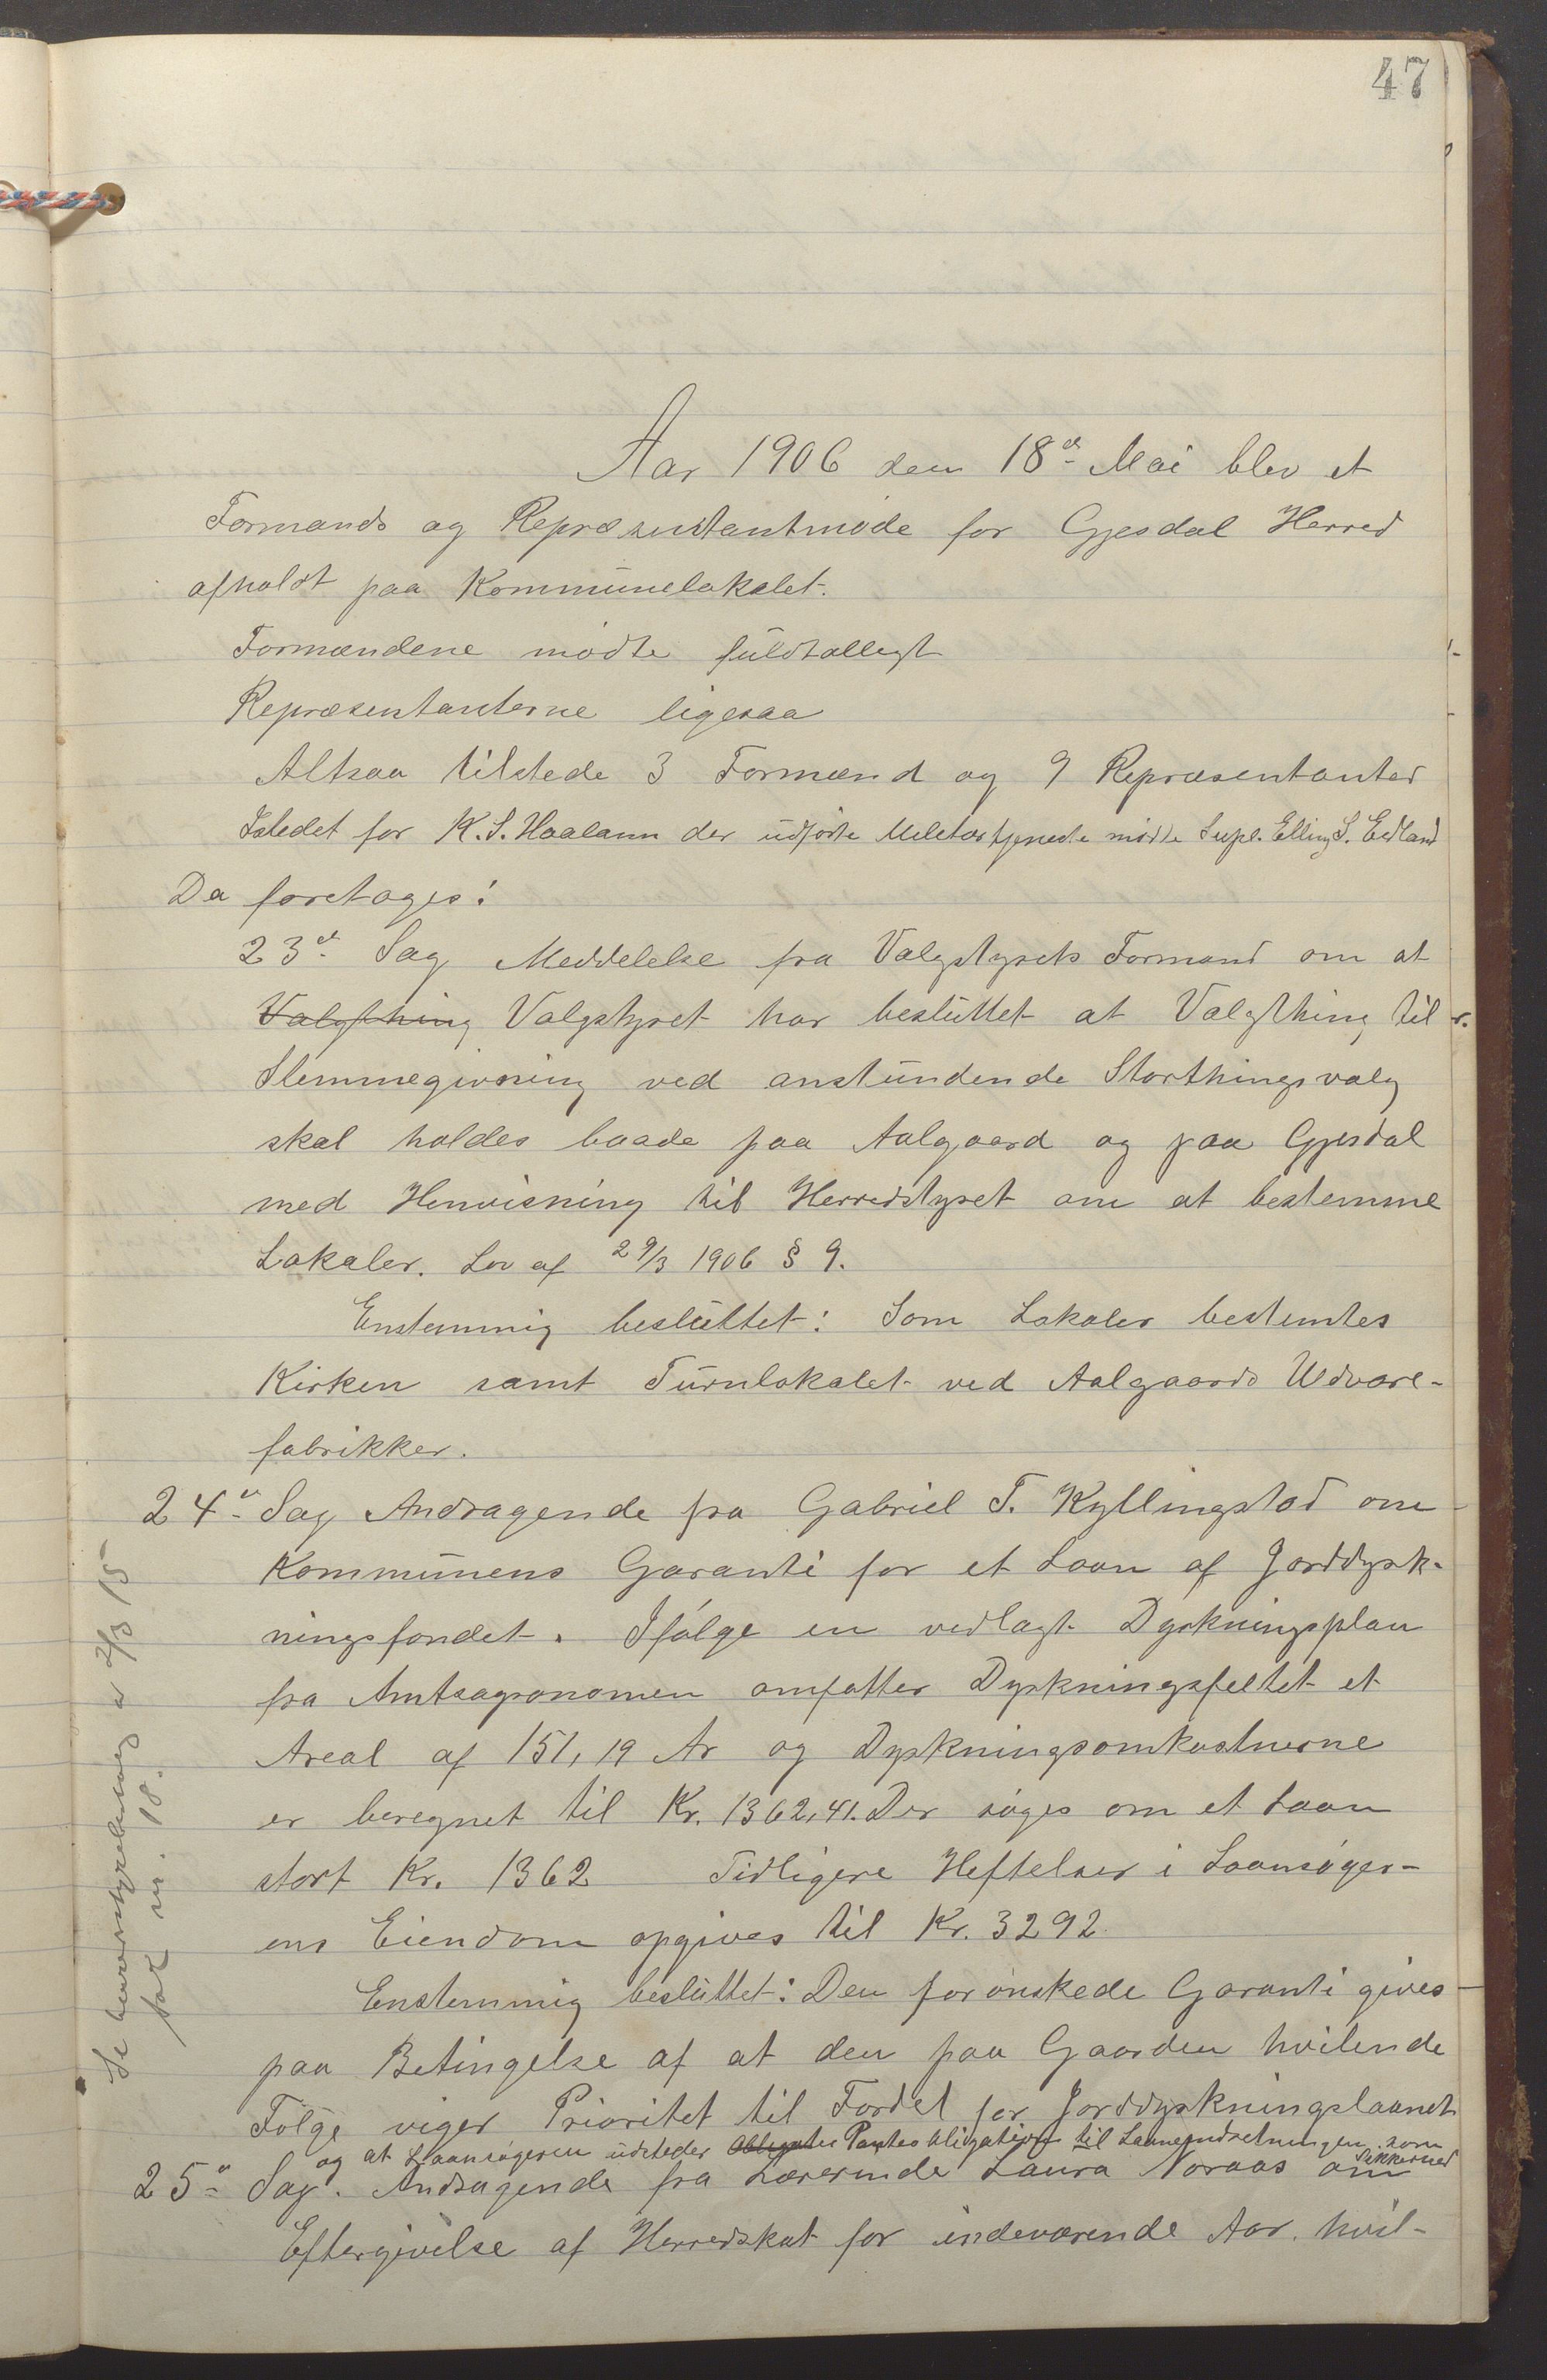 47
Aar 1906 den 18de Mai blev et
Formands og Repræsentantmøde for Gjesdal Herred
afholdt paa Kommunelokalet.
Formændene mødte fuldtalligt
Repræsentanterne ligesaa
Altsaa tilstede 3 Formænd og 9 Repræsentanter
Istedet for K. S. Haaland der udførte Militærtjeneste mødte Supl. Elling S. Edland
Da foretages:
23de Sag Meddelelse fra Valgstyrets Formand om at
Valgthing Valgstyret har besluttet at Valgthing til
Stemmegivning ved anstundende Storthingsvalg
skal holdes baade paa Aalgaard og paa Gjesdal
med Henvisning til Herredstyret om at bestemme
Lokaler. Lov af 29/3 1906 § 9.
Enstemmig besluttet: Som Lokaler bestemtes
Kirken samt Turnlokalet ved Aalgaards Uldvare-
fabrikker.
24de Sag Andragende fra Gabriel T. Kyllingstad om
Kommunens Garanti for et Laan af Jorddyrk-
ningsfondet. Ifølge en vedlagt Dyrkningsplan
fra Amtsagronomen omfatter Dyrkningsfeltet et
Areal af 151,19 Ar og Dyrkningsomkostnerne
er beregnet til Kr. 1362,41. Der søges om et Laan
stort Kr. 1362 Tidligere Heftelser i Laansøger-
ens Eiendom opgives til Kr. 3292.
Enstemmig besluttet: Den forønskede Garanti gives
paa Betingelse af at den paa Gaarden hvilende
Følge viger Prioritet til Fordel for Jorddyrkningslaanet
og at Laansøgeren udsteder Pantobligation til Laaneindretningen som
Sikkerhed
25de Sag. Andragende fra Lærerinde Laura Noraas om
Eftergivelse af Herredskat for indeværende Aar. hvil-
Se herredsstyrebeslutning a 2/3 15
sak nr. 18.